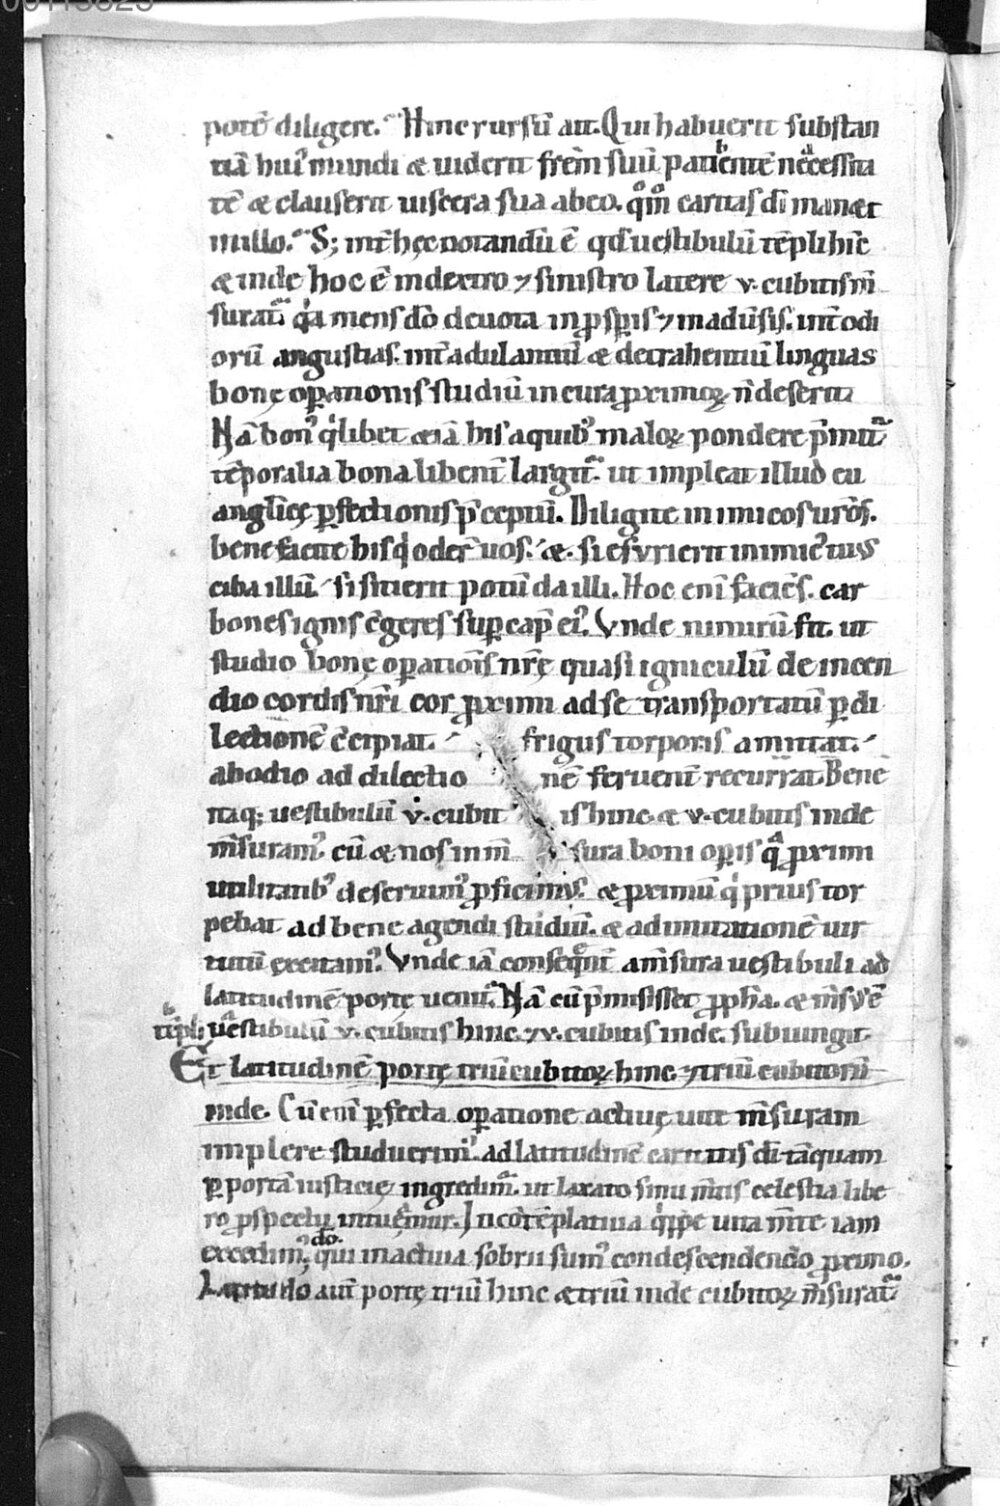 potē diligere. Hinc rursū ait. Qui habuerit substan
tiā hui' mundi & uiderit frēm suū patientē necessita
tē & clauserit uiscera sua abeo. qͦmͦ caritas dī man&
in illo. S; int̄ hęc notandū ē qđ uestibulū tēpli hīc
& inde hoc ē in dextro ⁊ sinistro latere v. cubitis m̄
surat᷑. q̇a mens dō deuota in ꝓsꝑis ⁊ in adūsis. int̄ odi
orū angustias. int̄ adulantiū & detrahentiū linguas
bonę oꝑationis studiū in cura ꝓximoꝝ n̄ deserit.
Nā bon' q̇libet &iā his aquib' maloꝝ pondere p̄mit᷑
tēporalia bona libent̄ largit᷑. ut impleat illud eu
anglicę ꝑfectionis p̄ceptū. Diligite inimicos ur̄os.
benefacite his q̇ oder̄ uos. &. si esurierit inimic' tuus
ciba illū. si sitierit potū da illi. Hoc enī faciēs. car
bones ignis cōgeres suꝑ cap̄ ei'. Vnde nimirū fit. ut
studio bonę oꝑationis nr̄ę quasi igniculū de incen
dio cordis nr̄i cor ꝓximi ad se transportatū ꝑ di
lectionē cc̄ipiat. frigus torporis amittat.
ab odio ad dilectio nē feruent̄ recurrat. Bene
itaq; uestibulū v. cubit is hinc & v. cubitis inde
m̄suram'. cū & nos in m̄ sura boni oꝑis qͣ ꝓximi
utilitatib' deseruim' ꝓficimus. & ꝓximū q̇ prius tor
pebat ad bene agendi studiū. & ad imitationē uir
tutū excitam'. Vnde iā conseq̄nt̄ am̄sura uestibuli ad
latitudinē portę uenit᷑. Nā cū p̄misisset ꝓph̄a. & m̄sus ē
tēpli uestibulū v. cubitis hinc ⁊ v. cubitis inde. subiungit.
Et latitudinē portę triū cubitoꝝ hinc ⁊ triū cubitorū
inde. Cū enī ꝑfecta oꝑatione actiuę uitę m̄suram
implere studuerim'. ad latitudinē caritatis dī tāquam
ꝑ portā iusticię ingredim᷑. ut laxato sinu m̄tis celestia libe
ro ꝓspectu intuęmur. In cōtēplatiua q̇ppe uita m̄te iam
excedim'. qui in actiua sobrii sum' condescendendo ꝓximo.
Latitudo aut̄ portę triū hinc & triū inde cubitoꝝ m̄surat᷑